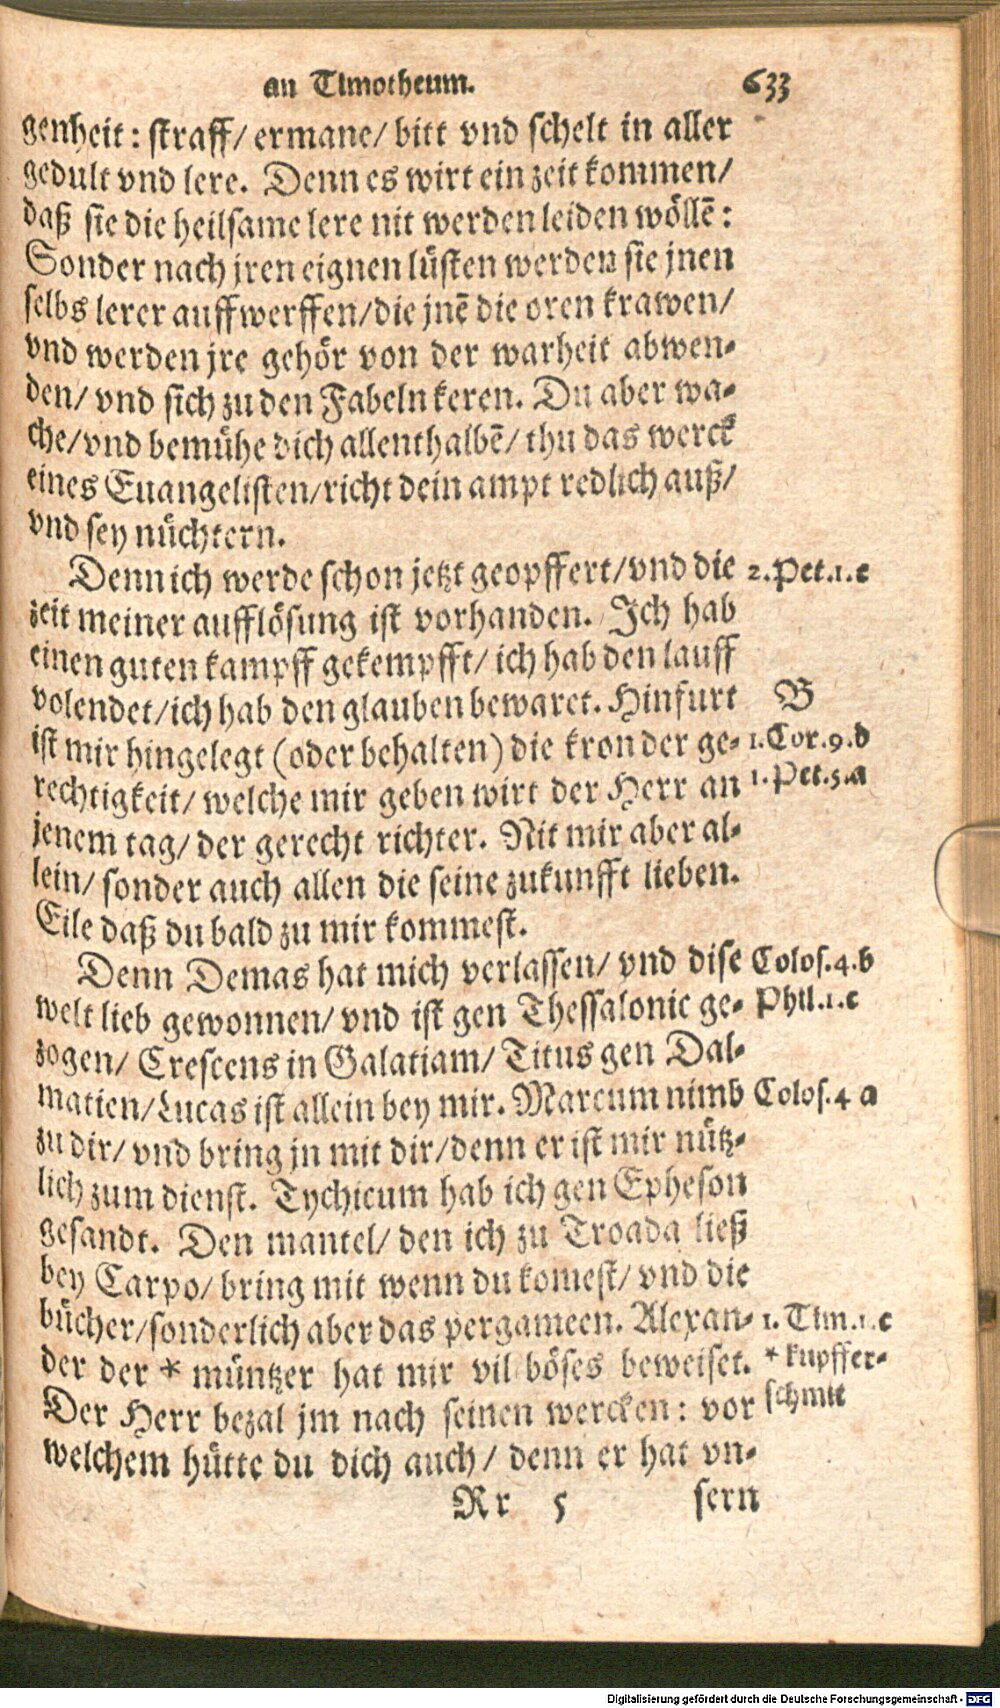 an Timotheum. 633
genheit: straff/ ermane/ bitt vnd schelt in aller
gedult vnd lere. Denn es wirt ein zeit kommen/
daß sie die heilsame lere nit werden leiden wöllẽ:
Sonder nach jren eignen lüsten werden sie jnen
selbs lerer auffwerffen/die jnẽ die oren krawen/
vnd werden jre gehör von der warheit abwen-
den/ vnd sich zu den Fabeln keren. Du aber wa-
che/vnd bemühe dich allenthalbẽ/ thu das werck
eines Euangelisten/richt dein ampt redlich auß/
vnd sey nüchtern.
Denn ich werde schon jetzt geopffert/vnd die 2.Pet.1.c
zeit meiner aufflösung ist vorhanden. Ich hab
einen guten kampff gekempfft/ ich hab den lauff
volendet/ich hab den glauben bewaret. Hinfurt B
ist mir hingelegt (oder behalten) die kron der ge- 1.Cor.9.d
rechtigkeit/ welche mir geben wirt der Herr an 1.Pet.5.a
jenem tag/ der gerecht richter. Nit mir aber al-
lein/ sonder auch allen die seine zukunfft lieben.
Eile daß du bald zu mir kommest.
Denn Demas hat mich verlassen/ vnd dise Colos.4.b
welt lieb gewonnen/ vnd ist gen Thessalonic ge- Phil.1.c
zogen/ Crescens in Galatiam/ Titus gen Dal-
matien/Lucas ist allein bey mir. Marcum nimb Colos.4 a
zu dir/ vnd bring jn mit dir/denn er ist mir nütz-
lich zum dienst. Tychicum hab ich gen Epheson
gesandt. Den mantel/ den ich zu Troada ließ
bey Carpo/ bring mit wenn du komest/ vnd die
bücher/sonderlich aber das pergameen. Alexan- 1.Tim.1.c
der der * müntzer hat mir vil böses beweiset. * kupffer-
Der Herr bezal jm nach seinen wercken: vor schmit
welchem hütte du dich auch/ denn er hat vn-
Rr 5 sern
Digitalisierung gefördert durch die Deutsche Forschungsgemeinschaft - DFG